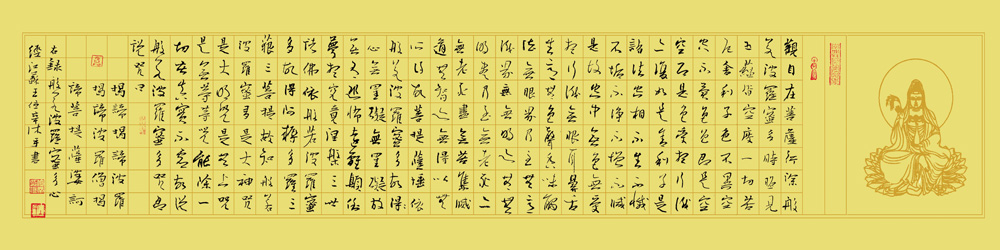 觀自在菩薩行深般
若波羅蜜多時照見
五蘊皆空度一切苦
厄舍利子色不異空
空不異色色即是空
空即是色受想行識
亦復如是舍利子是
諸法空相不生不滅
不垢不淨不增不減
是故空中無色無受
想行識無眼耳鼻舌
身意無色聲香味觸
法無眼界乃至無意
識界無無明亦無無
明盡乃至無老死亦
無老死盡無苦集滅
道無智亦無得以無
所得故菩提薩埵依
般若波羅蜜多故
心無罣礙無罣礙故
無有恐怖遠離顛倒
夢想究竟涅槃三世
諸佛依般若波羅蜜
多故得阿耨多羅三
藐三菩提故知般若
波羅蜜多是大神咒
是大明咒是無上咒
是無等等咒能除一
切苦真實不虛故說
般若波羅蜜多咒即
說咒曰
揭諦揭諦波羅
揭諦波羅僧揭
諦菩提薩婆訶
右錄般若波羅蜜多心
經江蘇王傳榮沐手書